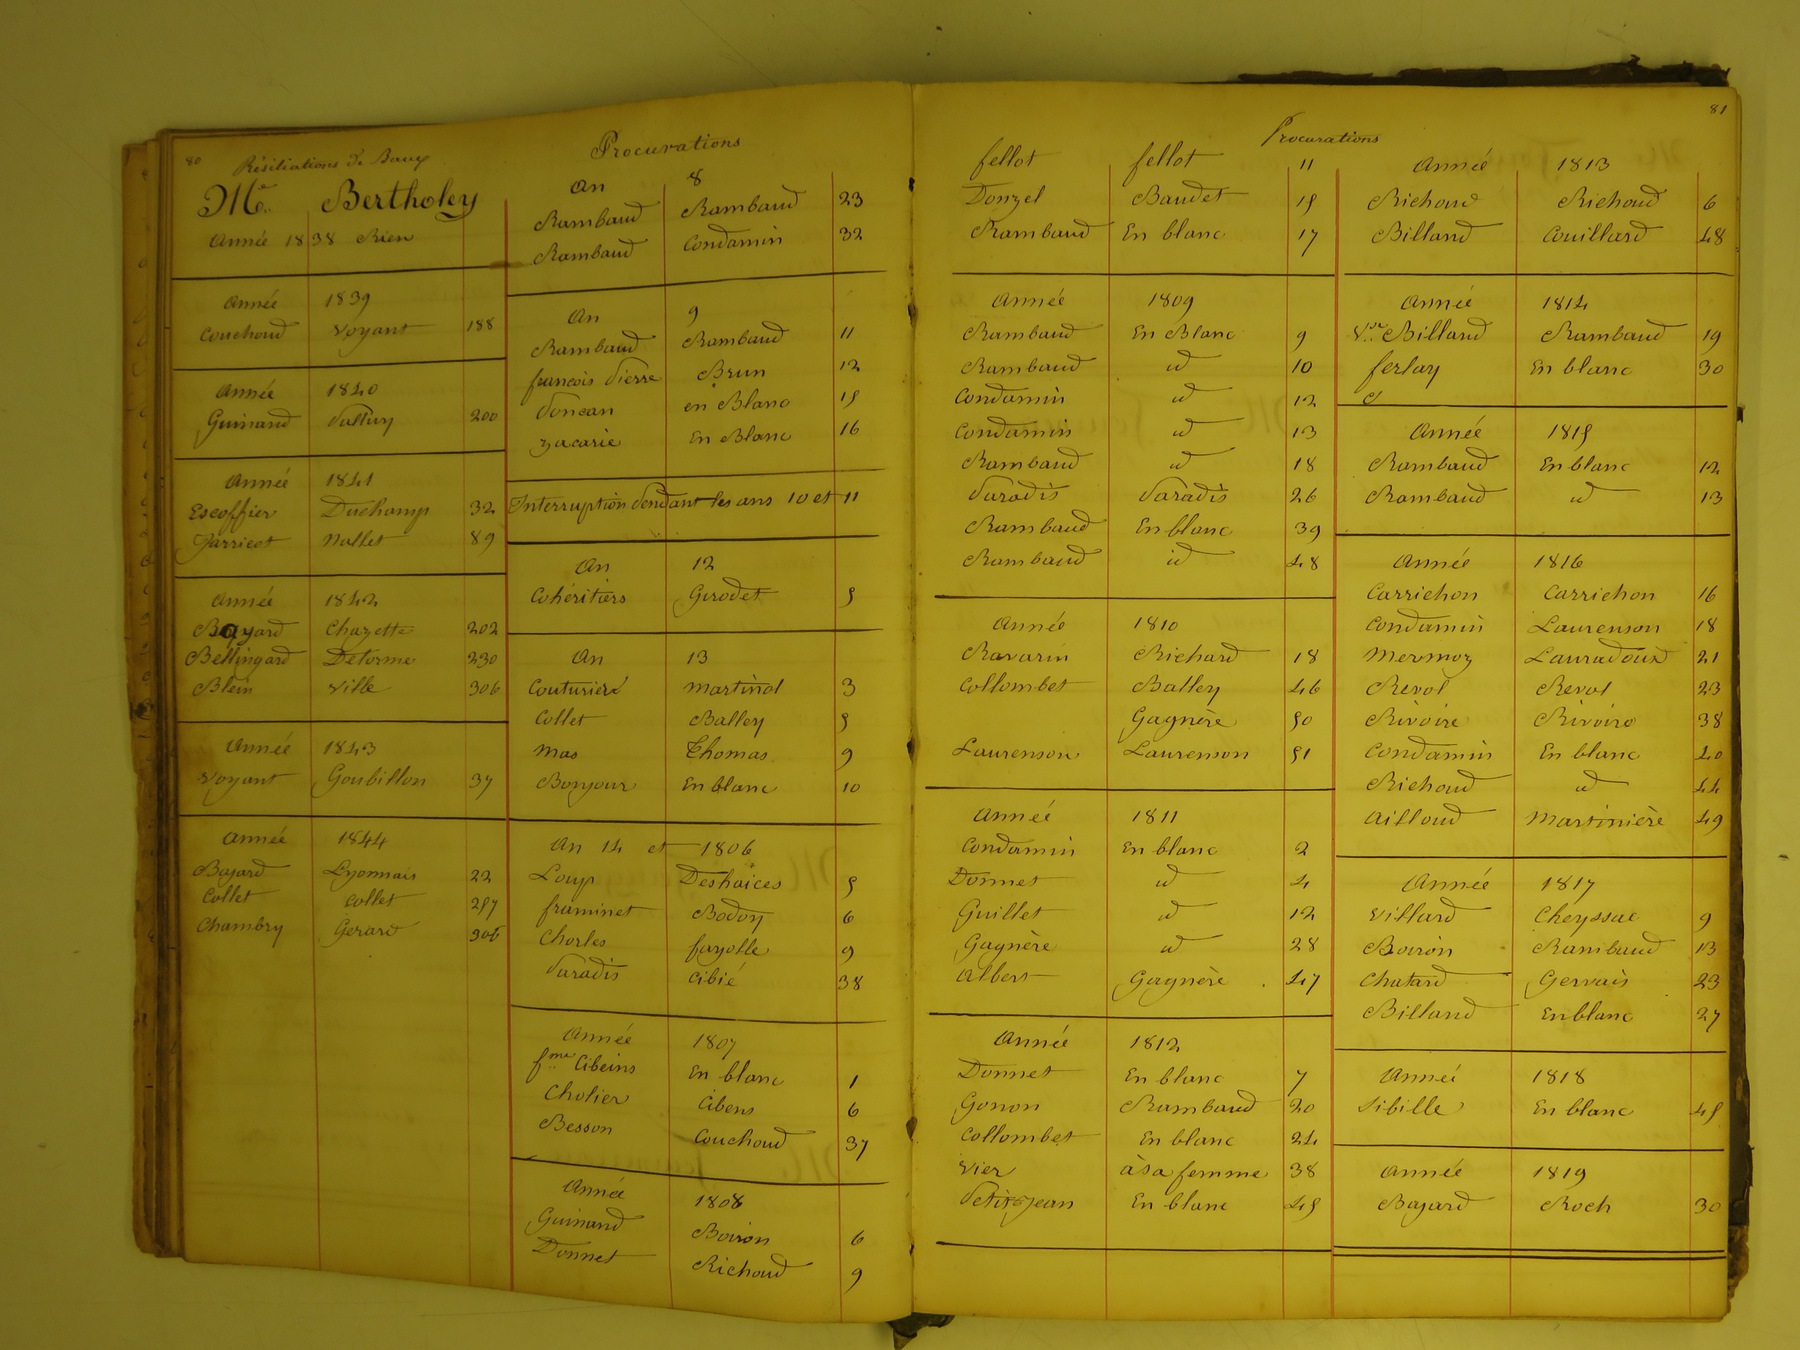 80
Résiliations de Baux
Me. Bertholey
Année 1838 Rien
Année 1839
Couchoud Voyant 188
Année 1840
Guinand Palluy 200
Année 1841
Escoffier Duchamp 32
Jarricot Nallet 89
Année 1842
Bayard Chazette 202
Bellingard Delorme 230
Blein Ville 306
Année 1843
Voyant Goubillon 37
Année 1844
Bajard Lyonnais 22
Collet Collet 257
Chambry Gerard 306
Procurations
An 8
Rambaud Rambaud 23
Rambaud Condamin 32
An 9
Rambaud Rambaud 11
françois Pierre Brun 12
Poncan en Blanc 15
Zacarie En Blanc 16
Interruption pendant les ans 10 et 11
An 12
Cohéritiers Girodet 5
An 13
Couturier Martinol 3
Collet Balley 5
Mas Thomas 9
Bonjour En blanc 10
An 14 et 1806
Loup Deshaices 5
framinet Bodoy 6
Charles fayolle 9
Paradis Cibié 38
Année 1807
fme Cibeins En blanc 1
Cholier Cibens 6
Besson Couchoud 37
Année 1808
Guinand Boiron 6
Donnet Richoud 9
81
Procurations
fellot fellot 11
Donzel Baudet 15
Rambaud En blanc 17
Année 1809
Rambaud En Blanc 9
Rambaud id 10
Condamin id 12
Condamin id 13
Rambaud id 18
Paradis Paradis 26
Rambaud En blanc 39
Rambaud id 48
Année 1810
Ravarin Richard 18
Collombet Balley 46
Gagnère 50
Laurenson Laurenson 51
Année 1811
Condamin En blanc 2
Donnet id 4
Guillet id 12
Gagnère id 28
Albert Gagnère 47
Année 1812
Donnet En blanc 7
Gonon Rambaud 20
Collombet En blanc 24
Vier à sa femme 38
Petitjean En blanc 45
Année 1813
Richoud Richoud 6
Billand Couillard 48
Année 1814
Vve Billand Rambaud 19
ferlay En blanc 30
Année 1815
Rambaud En blanc 12
Rambaud id 13
Année 1816
Carrichon Carrichon 16
Condamin Laurenson 18
Mermoz Lauradoux 21
Revol Revol 23
Rivoire Rivoire 38
Condamin En blanc 40
Richoud id 44
Ailloud Martinière 49
Année 1817
Villard Cheyssac 9
Boiron Rambaud 13
Chatard Gervais 23
Billand En blanc 27
Année 1818
Sibille En blanc 45
Année 1819
Bajard Roch 30